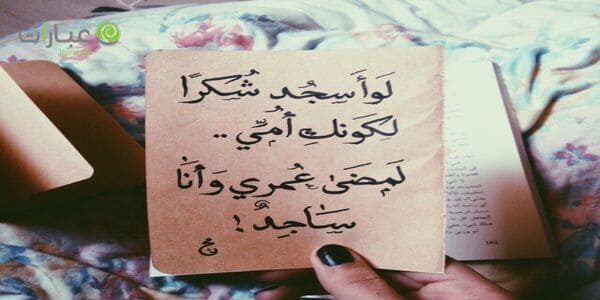 عبارات
لَوأَسجُد شُكرًا
لِكَونكِ أُمِّي ..
لَمضَىٰ عُمري وَأنَا
سَاجِدٌ !